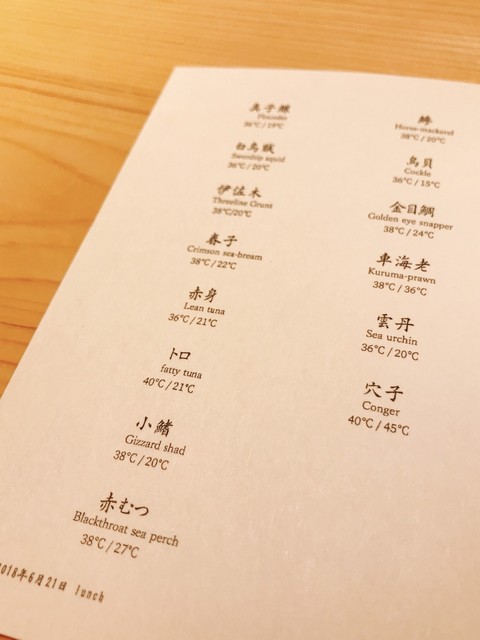 真子鰈
Flounder
36℃ / 19℃
白烏賊
Swordtip squid
36℃ / 20℃
伊佐木
Threeline Grunt
38℃/20℃
春子
Crimson sea-bream
38℃ / 22℃
赤身
Lean tuna
36℃ / 21℃
トロ
fatty tuna
40℃ / 21℃
小鰭
Gizzard shad
38℃ / 20℃
赤むつ
Blackthroat sea perch
38℃ / 27℃
鯵
Horse-mackerel
38℃ / 20℃
鳥貝
Cockle
36℃ / 15℃
金目鯛
Golden eye snapper
38℃ / 24℃
車海老
Kuruma-prawn
38℃ / 36℃
雲丹
Sea urchin
36℃ / 20℃
穴子
Conger
40℃ / 45℃
2018年6月21日 lunch